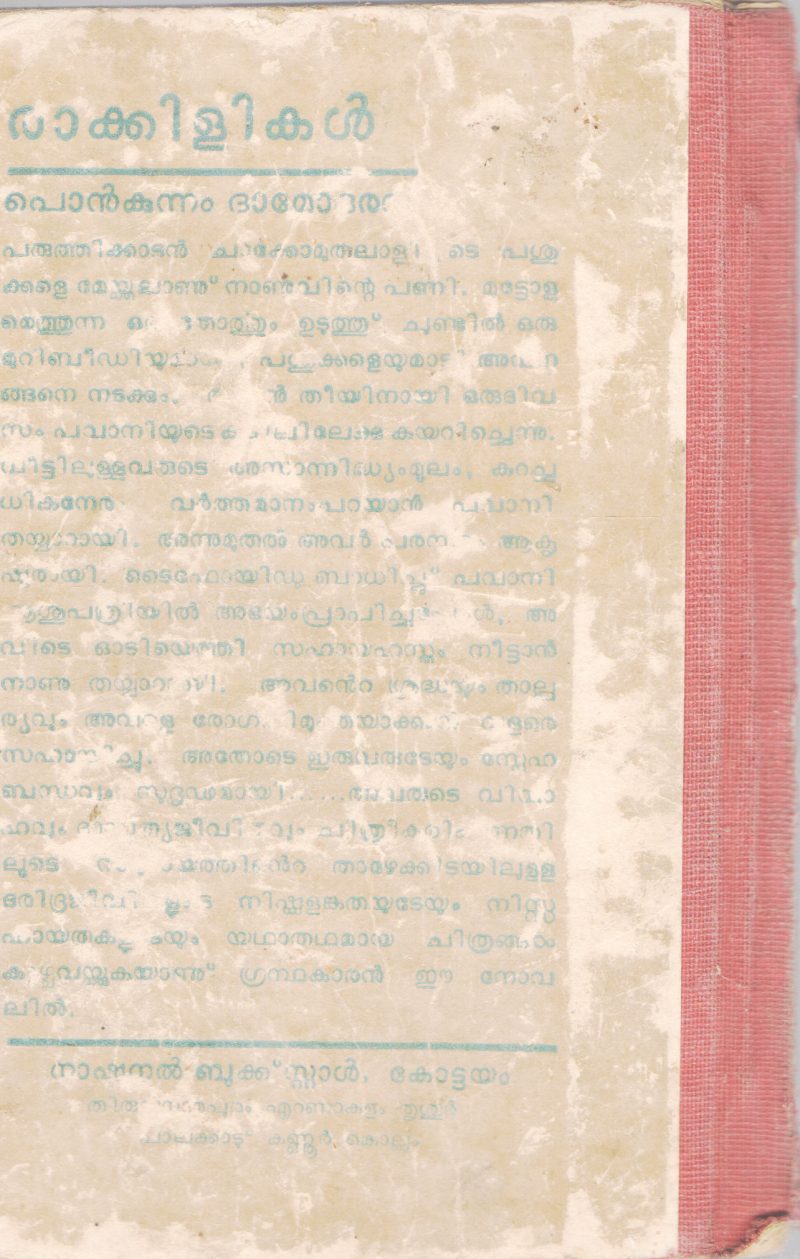 രാക്കിളികൾ
പൊൻകുന്നം ദാമോദരൻ
പരുത്തിക്കാടൻ ചാക്കോമുതലാളി ടെ പശു
ക്കളെ മേയ്ക്കലാണു് നാണുവിന്റെ പണി. മുട്ടോള
മെത്തുന്ന ഒരു തോർത്തും ഉടുത്തു് ചുണ്ടിൽ ഒരു
മുറിബീഡിയുമായി, പശുക്കളെയുമായി അവന
ങ്ങനെ നടക്കും. തീയിനായി ഒരുദിവ
സം പവാനിയുടെ കയറിച്ചെന്നു.
വീട്ടിലുള്ളവരുടെ അസാന്നിദ്ധ്യംമൂലം, കുറച്ച
ധികനേരം വർത്തമാനംപറയാൻ പവാനി
തയ്യാറായി. അന്നുമുതൽ അവർ ആകൃ
ഷ്ടരായി. ടൈഫോയിഡു ബാധിച്ചു് പവാനി
ആശുപത്രിയിൽ അഭയംപ്രാപിച്ചപ്പോൾ, അ
വിടെ ഓടിയെത്തി സഹായഹസ്തം നീട്ടാൻ
നാണു തയ്യാറായി. അവൻെറ ശ്രദ്ധയും താല്പ
ര്യവും അവളെ വളരെ
സഹായിച്ചു. അതോടെ ഇരുവരുടേയും സ്നേഹ
ബന്ധവും സുദൃഢമായി......അവരുടെ വിവാ
ഹവും ദാമ്പത്യജീവിതവും ചിത്രീകരിക്കുന്നതി
ലൂടെ സമുദായത്തിൻെറ താഴേക്കിടയിലുള്ള
ദരിദ്രജീവി നിഷ്കളങ്കതയുടേയും നിസ്സ
ഹായതകളുടേയും യഥാതഥമായ ചിത്രങ്ങൾ
കാഴ്ചവയ്ക്കുകയാണു് ഗ്രന്ഥകാരൻ ഈ നോവ
ലിൽ.
നാഷനൽ ബുക്ക് സ്റ്റാൾ, കോട്ടയം
തിരുവനന്തപുരം എറണാകുളം തൃശൂർ
പാലക്കാട് കണ്ണൂർ കൊല്ലം